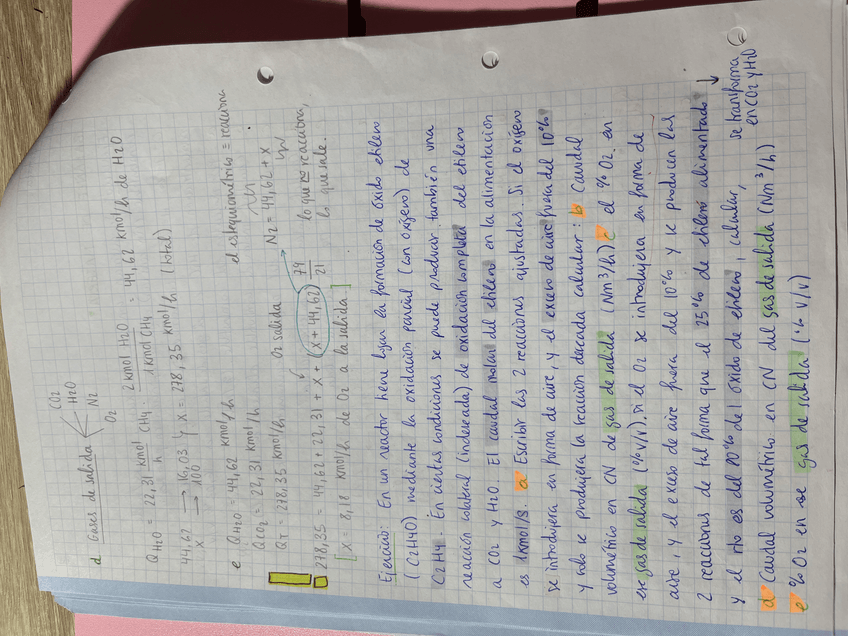 d Gases de salida CO2 H2O N2 O2
QH2O = 22,31 kmol CH4/h · 2 kmol H2O / 1 kmol CH4 = 44,62 kmol/h de H2O
44,62 → 16,03
x → 100 } x = 278,35 kmol/h (total)
e QH2O = 44,62 kmol/h
QCO2 = 22,31 kmol/h
el estequiométrico = reacciona
QT = 278,35 kmol/h. O2 salida N2 = 44,62 + x
278,35 = 44,62 + 22,31 + x + (x + 44,62) 79/21
lo que no reacciona,
lo que sale.
[x = 8,18 kmol/h de O2 a la salida]
Ejercicio: En un reactor tiene lugar la formación de óxido etileno
(C2H4O) mediante la oxidación parcial (con oxígeno) de
C2H4. En ciertas condiciones se puede producir también una
reacción colateral (indeseada) de oxidación completa del etileno
a CO2 y H2O. El caudal molar del etileno en la alimentación
es 1kmol/s. a Escribir las 2 reacciones ajustadas. Si el oxígeno
se introdujera en forma de aire, y el exceso de aire fuera del 10%
y solo se produjera la reacción deseada calcular: b Caudal
volumétrico en CN de gas de salida (Nm3/h) c el % O2 en
en gas de salida (% v/v). si el O2 se introdujera en forma de
aire, y el exceso de aire fuera del 10% y se producen las
2 reacciones de tal forma que el 25% de etileno alimentado ↓
y el rto es del 80% del óxido de etileno, calcular, se transforma en CO2 y H2O
d Caudal volumétrico en CN del gas de salida (Nm3/h)
e % O2 en se gas de salida (% v/v)